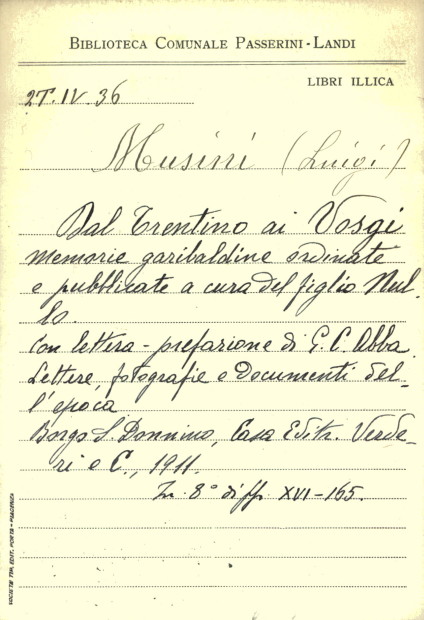 BIBLIOTECA COMUNALE PASSERINI-LANDI
LIBRI ILLICA
27.IV.36
Musini (Luigi)
Dal Trentino ai Vosgi
memorie garibaldine ordinate
e pubblicate a cura del figlio Nul-
lo.
Con lettera-prefazione di G. C. Abba.
Lettere, fotografie e Documenti del-
l'epoca
Borgo S. Donnino, Casa Editr. Verde-
ri e C., 1911.
In 8° di ff. XVI-165.
SOCIETÀ TIP. EDIT. PORTA - PIACENZA